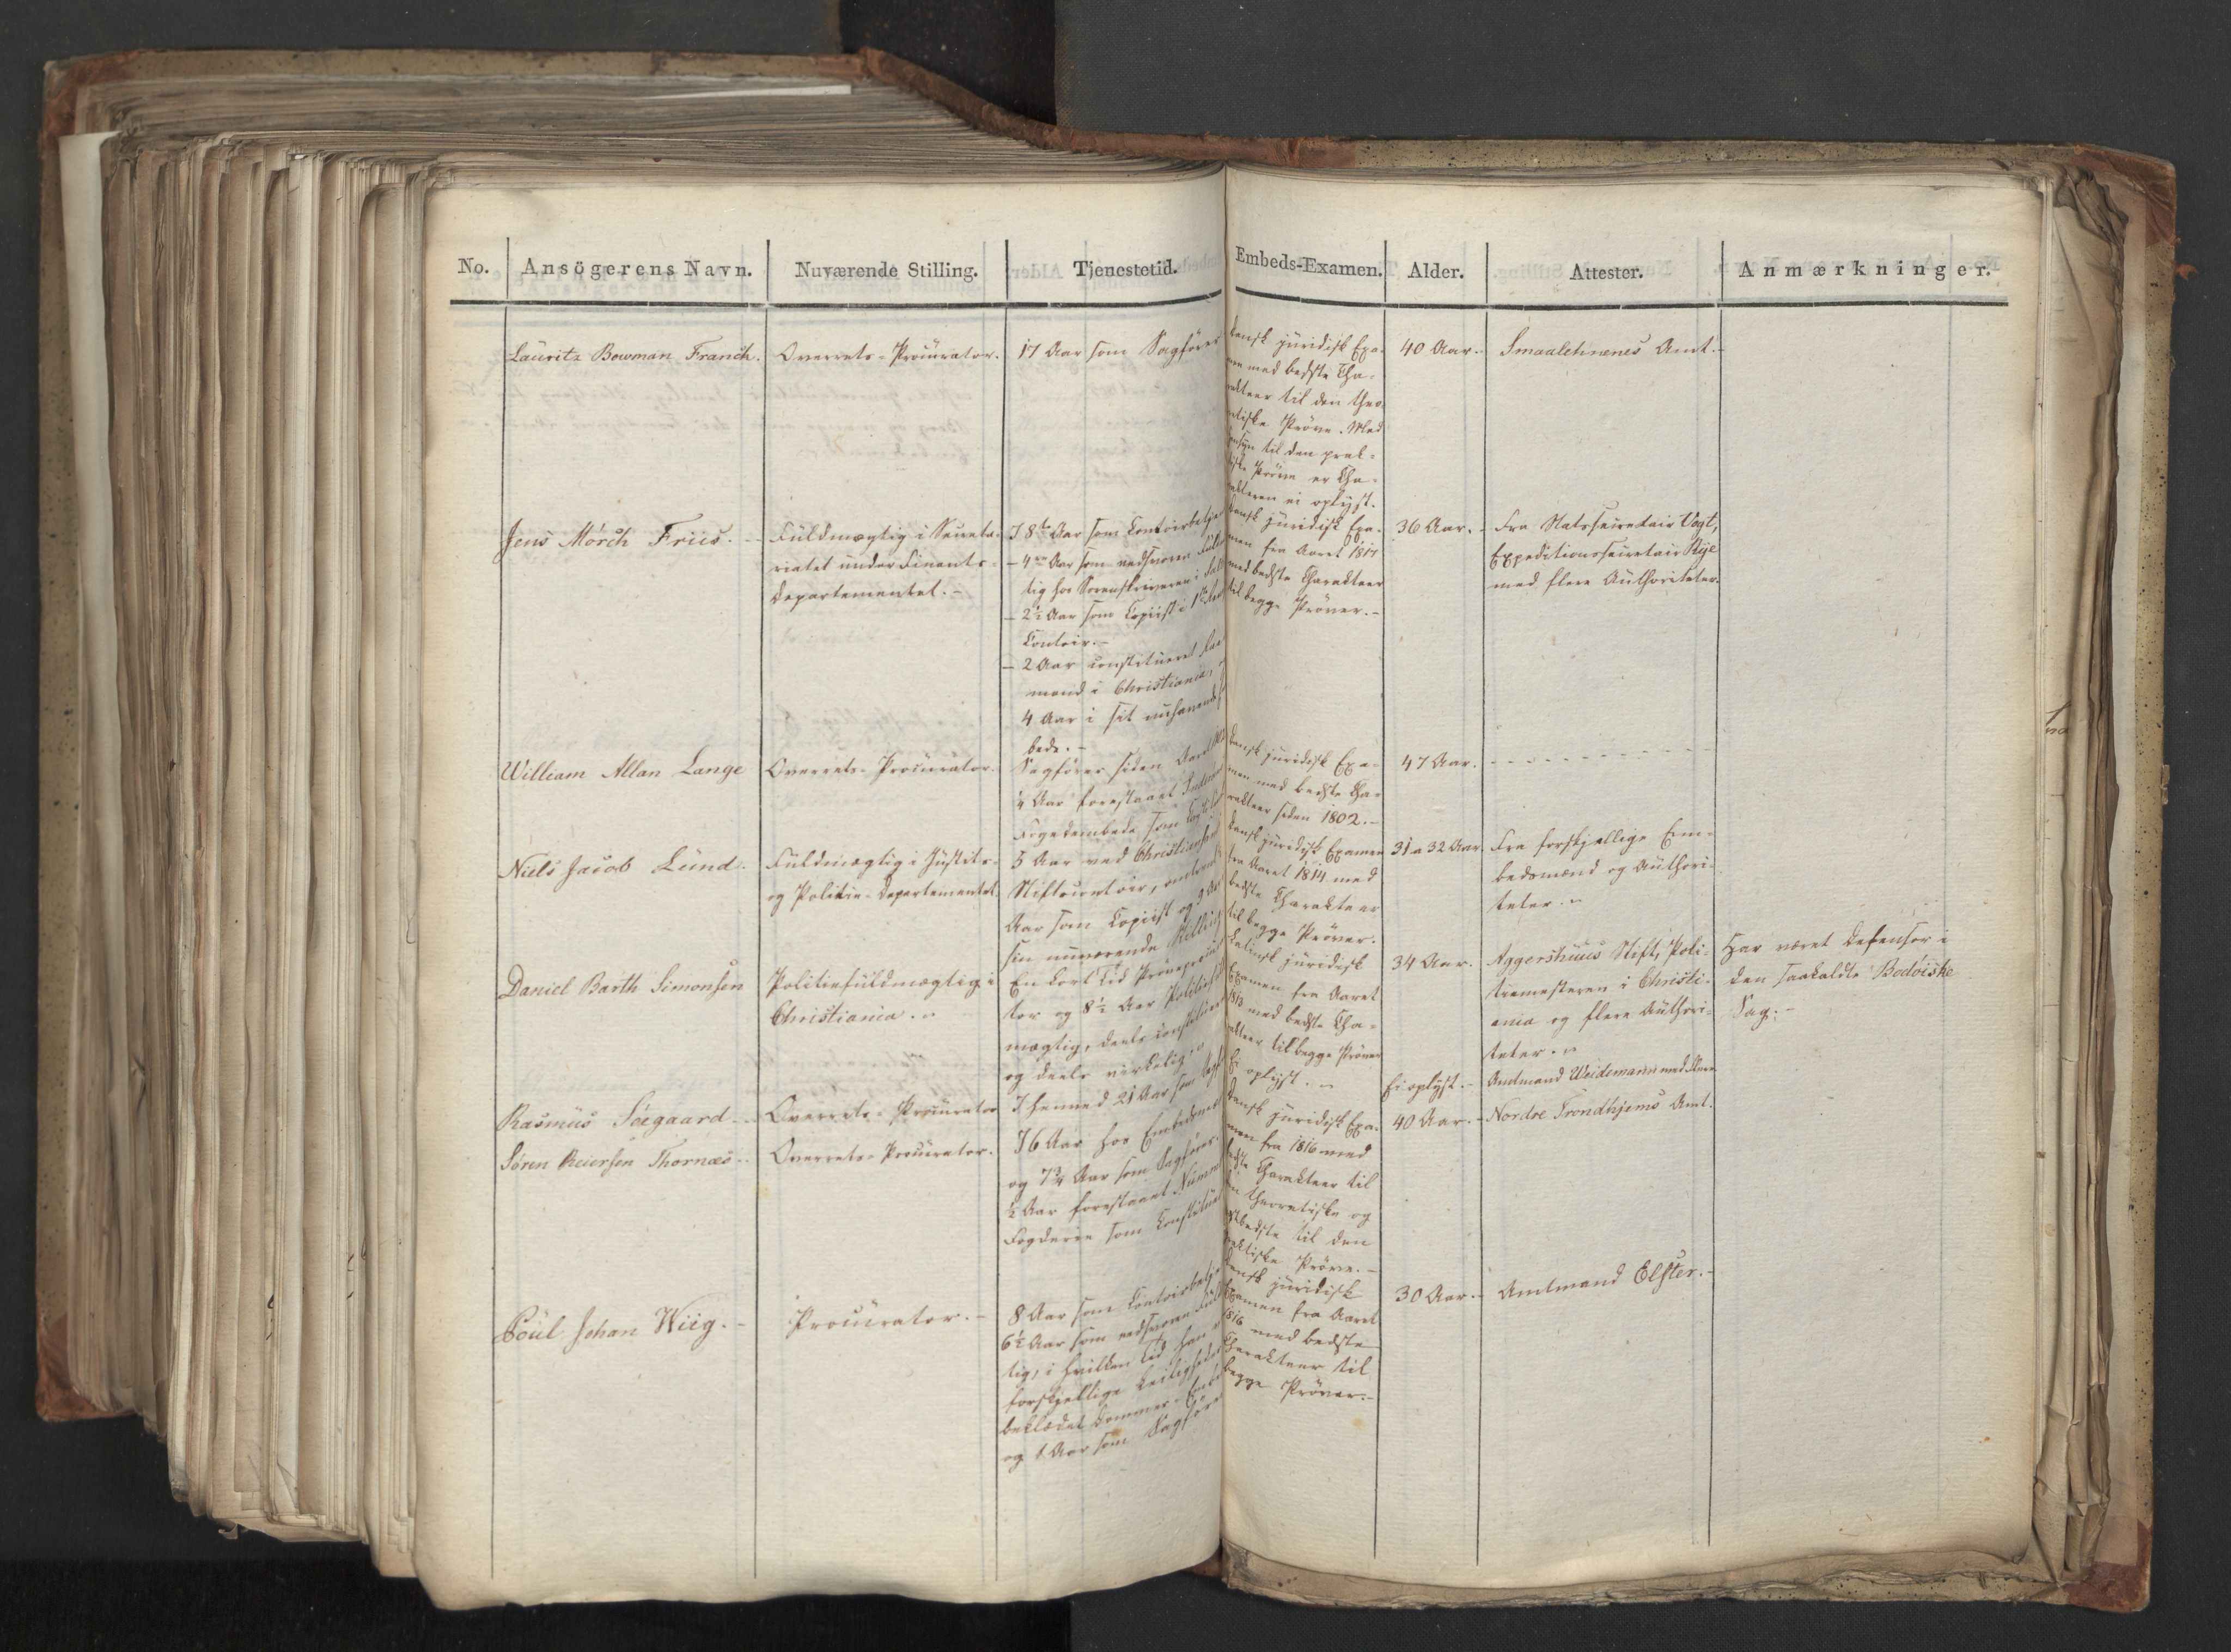 No. Ansögerens Navn. Nuværende Stilling. Tjenestetid. Embeds-Examen. Alder. Attester. Anmærkninger.
Lauritz Bowman Franch. Overrets-Procurator. 17 Aar som Sagfører
dansk juridisk Exa-
men med bedste Cha-
rakteer til den theo-
retiske Prøve. Med
Hensyn til den prak-
tiske Prøve er Cha-
rakteren ei oplyst.
40 Aar.
Smaalehnenes Amt.
Jens Mørch Friis.
Fuldmægtig i Secreta-
riatet under Finants-
Departementet.
I 8te Aar som Contoirbetjent
4re Aar som eedsvoren Fuld
tig hos Sorenskriveren i
2½ Aar som Copiist i 1ste
Contoir.
2 Aar constitueret
mand i Christiania,
4 Aar i sit nuhavende
bede.
dansk juridisk Exa-
men fra Aaret 1817
med bedste Charakteer
til begge Prøver.
36 Aar.
Fra Statssecretair Vogt,
Expeditionssecretair Rye
med flere Authoriteter.
William Allan Lange
Overrets-Procurator.
Sagfører siden Aaret
¼ Aar forestaaet
Fogedembede som
dansk juridisk Exa-
men med bedste Cha-
rakteer siden 1802.
47 Aar.
Niels Jacob Lund.
Fuldmægtig i Justits-
og Politie-Departementet.
5 Aar ved Christiansands
Stiftscontoir, omtrent
Aar som Copiist og 3 Aar
sin nuværende Stilling
dansk juridisk Examen
fra Aaret 1814 med
bedste Charakteer
til begge Prøver.
31 a 32 Aar
Fra forskjellige Em-
bedsmænd og Authori-
teter.
Daniel Barth Simonsen
Politiefuldmægtig i
Christiania.
En kort Tid Prøveprocura
tor og 8½ Aar Politiefuld
mægtig, deels constitueret
og deels virkelig.
Latinsk juridisk
Examen fra Aaret
1813 med bedste Cha-
rakteer til begge Prøver
34 Aar.
Aggershuus Stift, Poli-
tiemesteren i Christi-
ania og flere Authori-
teter.
Har været Defensor i
den saakaldte Bodøiske
Sag.
Rasmus Søegaard
Overrets-Procurator
I henved 21 Aar som
Ei oplyst.
Ei oplyst.
Amtmand Weidemann med flere
Søren Reiersen Thornæs
Overrets-Procurator.
I 6 Aar hos Embedsmænd
og 7¾ Aar som Sagfører.
½ Aar forestaaet
Fogderie som Constitueret
dansk juridisk Exa-
men fra 1816 med
bedste Charakteer til
den theoretiske og
næstbedste til den
praktiske Prøve.
40 Aar.
Nordre Trondhjems Amt.
Poul Johan Wiig.
Procurator.
8 Aar som Contoirbetjent
6½ Aar som eedsvoren Fuld
tig, i hvilken Tid han
forskjellige Leiligheder
beklædet Dommer-
og 1 Aar som Sagfører
dansk juridisk
Examen fra Aaret
1816 med bedste
Charakteer til
begge Prøver.
30 Aar.
Amtmand Elster.